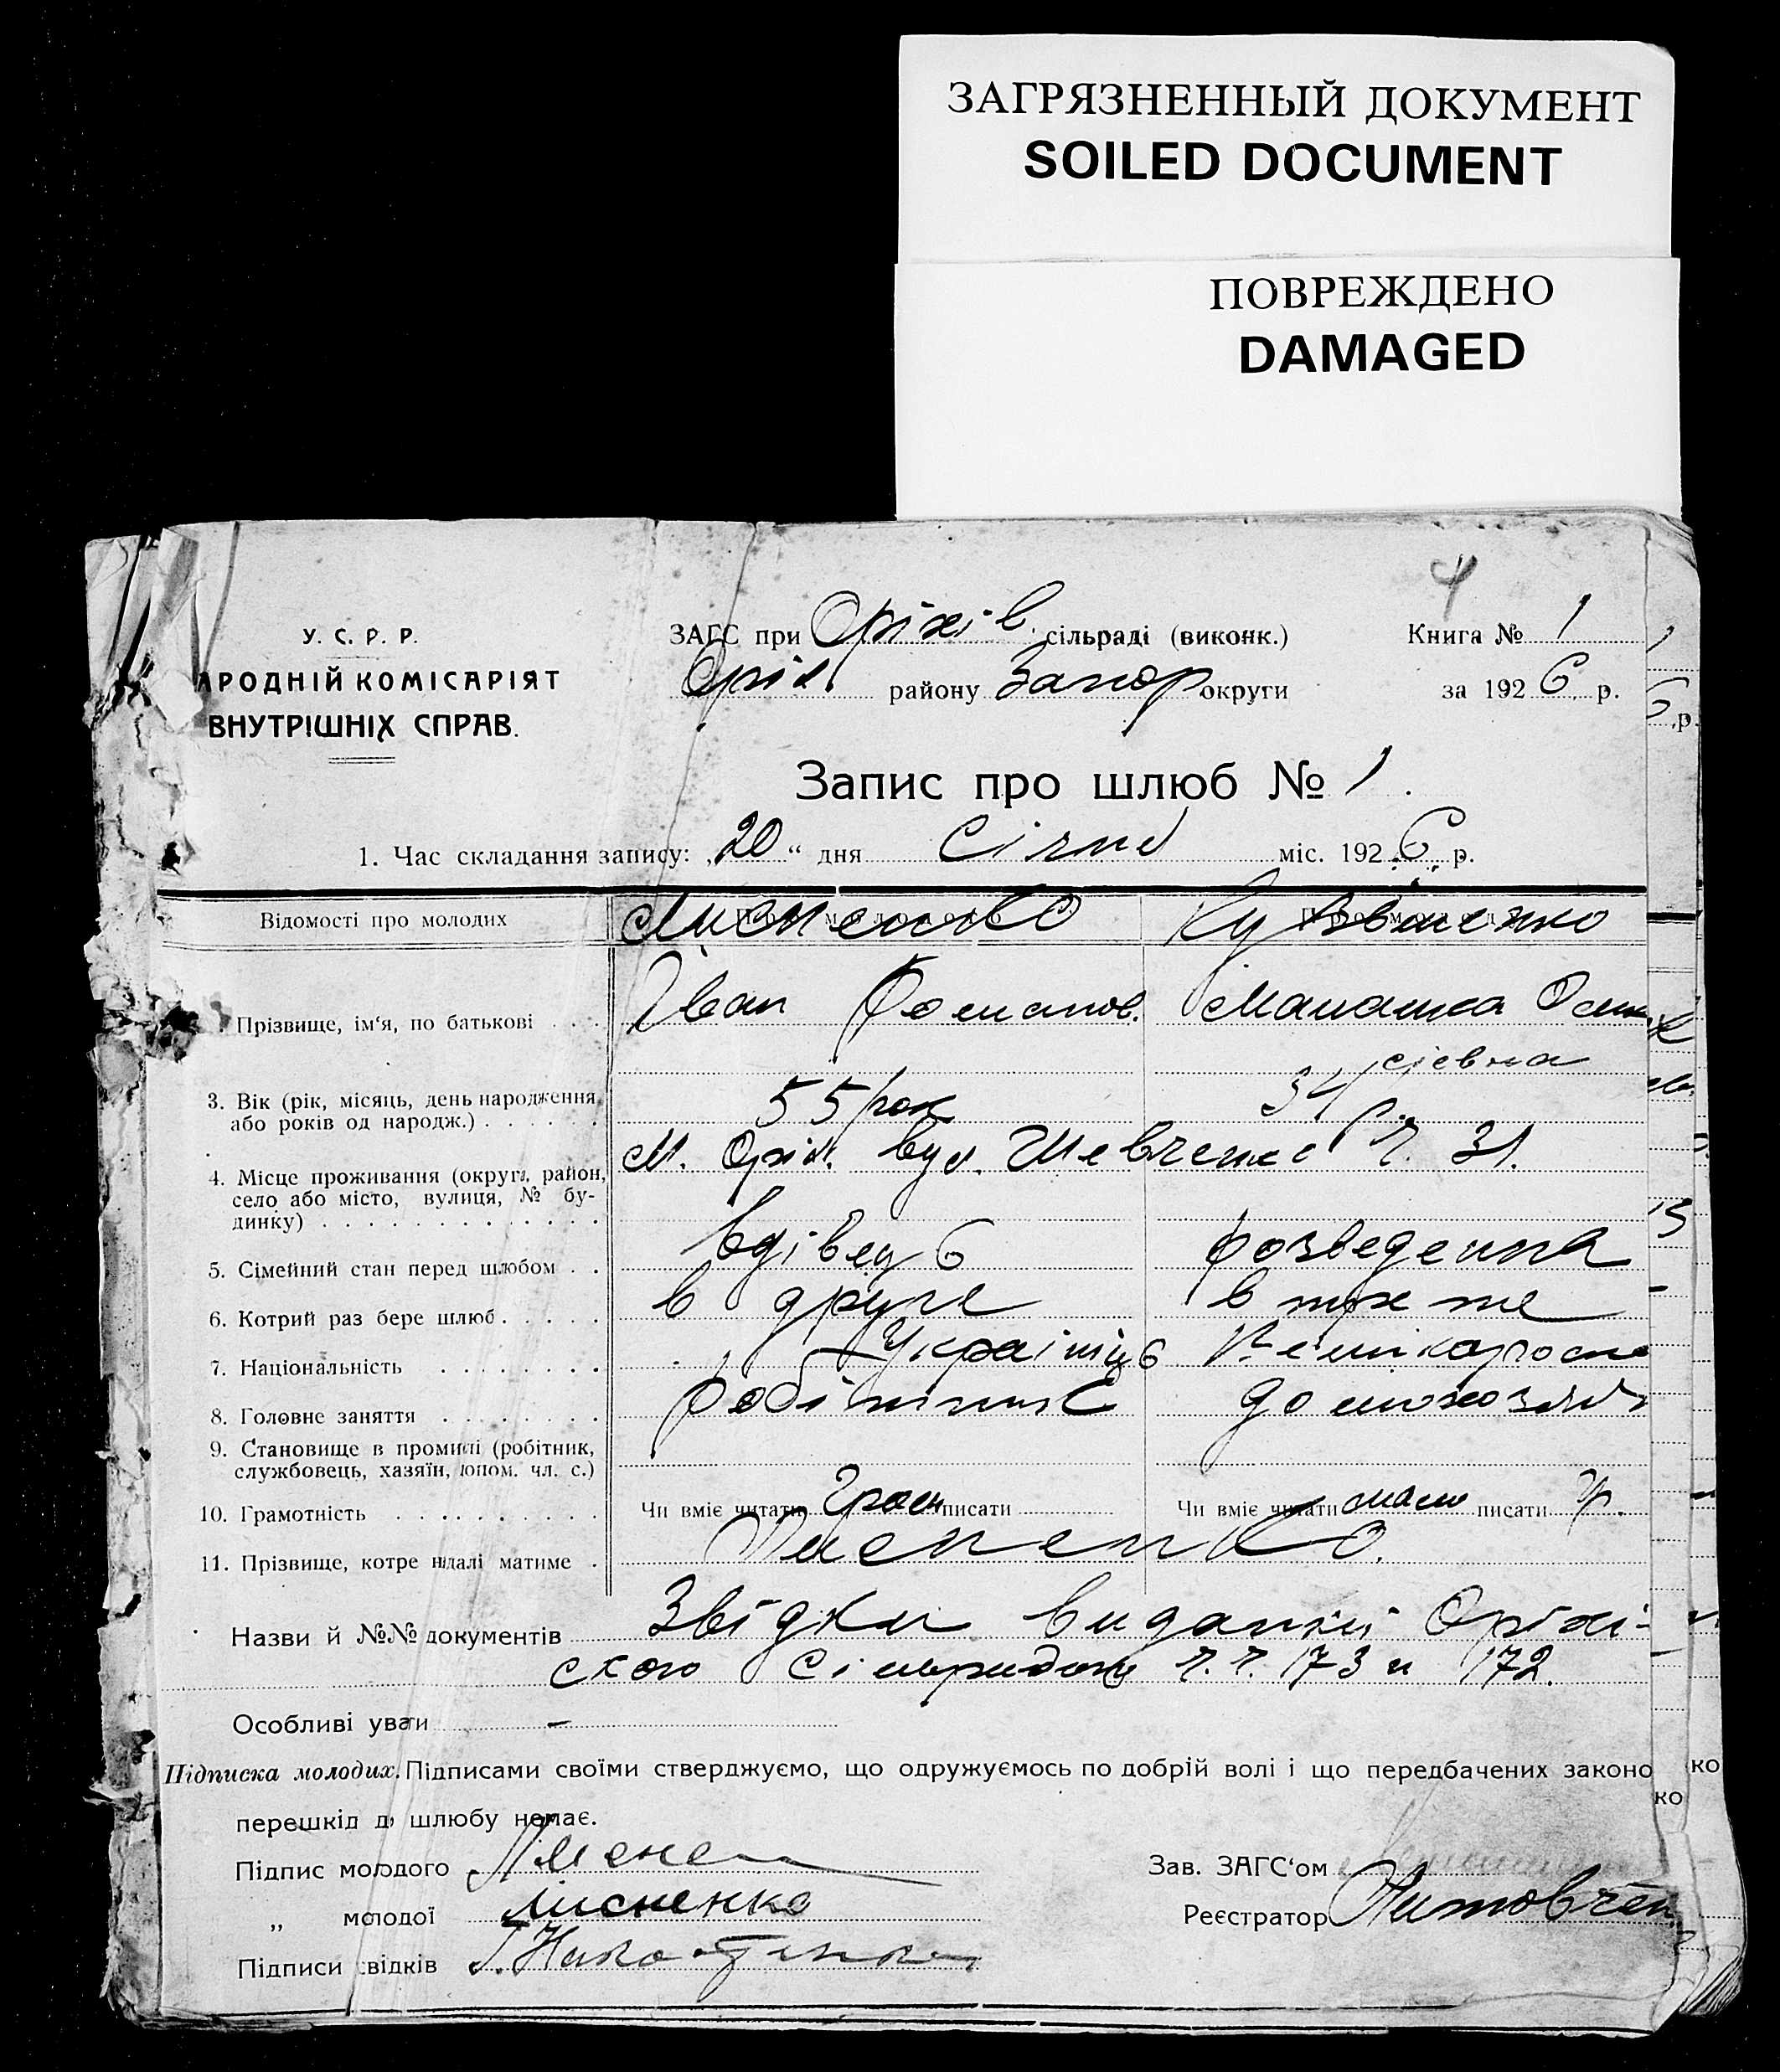 ЗАГРЯЗНЕННЫЙ ДОКУМЕНТ
SOILED DOCUMENT
ПОВРЕЖДЕНО
DAMAGED
4
У. С. Р. Р.
АРОДНІЙ КОМІСАРІЯТ
ВНУТРІШНІХ СПРАВ.
ЗАГС при Оріхів. сільраді (виконк.)
Книга № 1
Оріх. району Запор округи
за 1926 р.
Запис про шлюб № 1.
1. Час складання запису: „20“ дня Січня міс. 1926 р.
Відомості про молодих
Лисненко
Прізвище, ім‘я, по батькові . . . Іван Романов. Маланка
сієвна
3. Вік (рік, місяць, день народження
або років од народж.) . . . . . . 55 рок 34 р.
4. Місце проживання (округа, район,
село або місто, вулиця, № бу-
динку) . . . . . . . . . . . . .
м. Оріх. вул. Шевченко ч. 31.
5. Сімейний стан перед шлюбом . . вдівець розведенна
6. Котрий раз бере шлюб . . . . . в друге в трете
7. Національність . . . . . . . . Українць
8. Головне заняття . . . . . . . . робітник домохозяй
9. Становище в промислі (робітник,
службовець, хазяїн, допом. чл. с.)
10. Грамотність . . . . . . . . . . Чи вміє читати писати Чи вміє читати мало писати
11. Прізвище, котре надалі матиме . Лисненко.
Назви й №№ документів Звідки виданні Оріхі-
ского ч.ч. 173 и 172.
Особливі уваги —
Підписка молодих. Підписами своїми стверджуємо, що одружуємось по добрій волі і що передбачених законо
перешкід до шлюбу немає.
Підпис молодого
Зав. ЗАГС‘ом
„ молодої лисненко
Реєстратор Литовчен
Підписи свідків